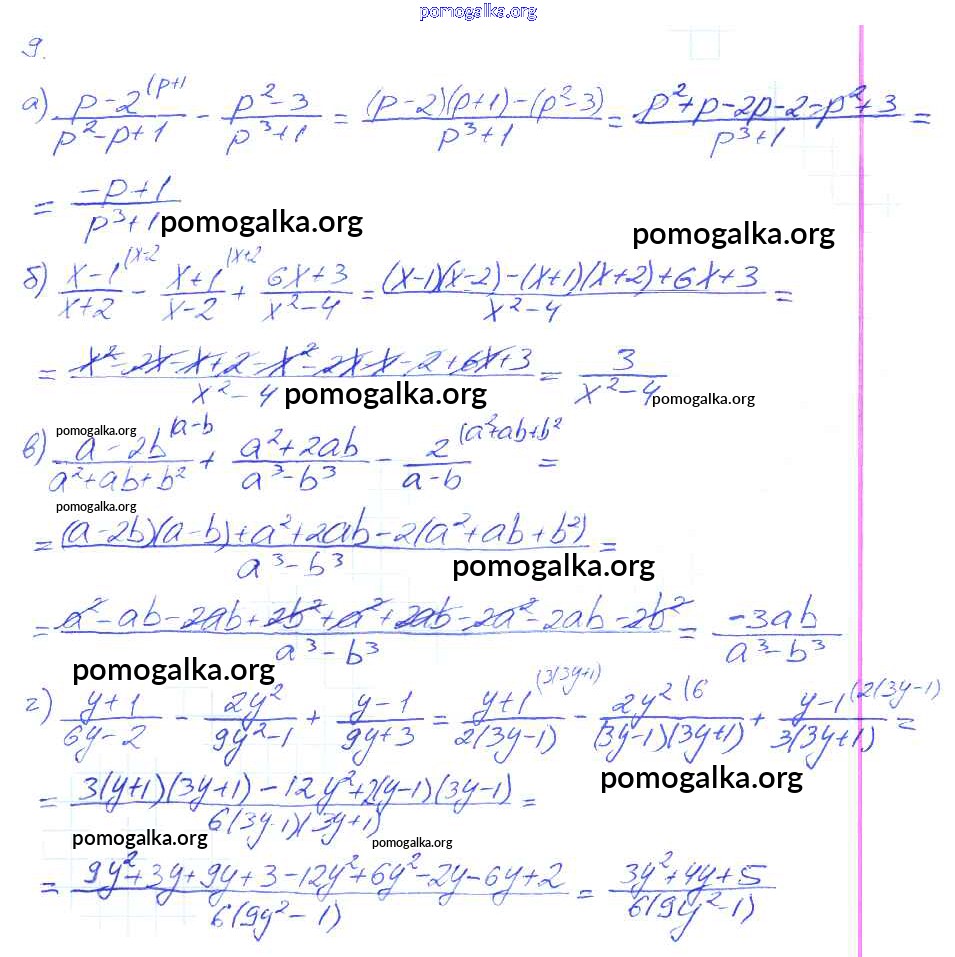 pomogalka.org
9.
а) (p-2^(p+1)/(p²-p+1) - (p²-3)/(p³+1) = ((p-2)(p+1)-(p²-3))/(p³+1) = (p²+p-2p-2-p²+3)/(p³+1) =
= (-p+1)/(p³+1) pomogalka.org
pomogalka.org
б) (x-1^(x-2)/(x+2) - (x+1^(x+2)/(x-2) + (6x+3)/(x²-4) = ((x-1)(x-2)-(x+1)(x+2)+6x+3)/(x²-4) =
= (x²-2x-x+2-x²-2x-x-2+6x+3)/(x²-4) = 3/(x²-4)
pomogalka.org pomogalka.org
pomogalka.org
в) (a-2b^(a-b)/(a²+ab+b²) + (a²+2ab)/(a³-b³) - 2^(a²+ab+b²/(a-b) =
pomogalka.org
= ((a-2b)(a-b)+a²+2ab-2(a²+ab+b²))/(a³-b³) =
pomogalka.org
= (a²-ab-2ab+2b²+a²+2ab-2a²-2ab-2b²)/(a³-b³) = -3ab/(a³-b³)
pomogalka.org
г) (y+1)/(6y-2) - 2y²/(9y²-1) + (y-1)/(9y+3) = (y+1^(3(3y+1))/(2(3y-1)) - 2y²^(6/((3y-1)(3y+1)) + (y-1^(2(3y-1))/(3(3y+1)) =
pomogalka.org
= (3(y+1)(3y+1)-12y²+2(y-1)(3y-1))/(6(3y-1)(3y+1)) =
pomogalka.org pomogalka.org
= (9y²+3y+9y+3-12y²+6y²-2y-6y+2)/(6(9y²-1)) = (3y²+4y+5)/(6(9y²-1))